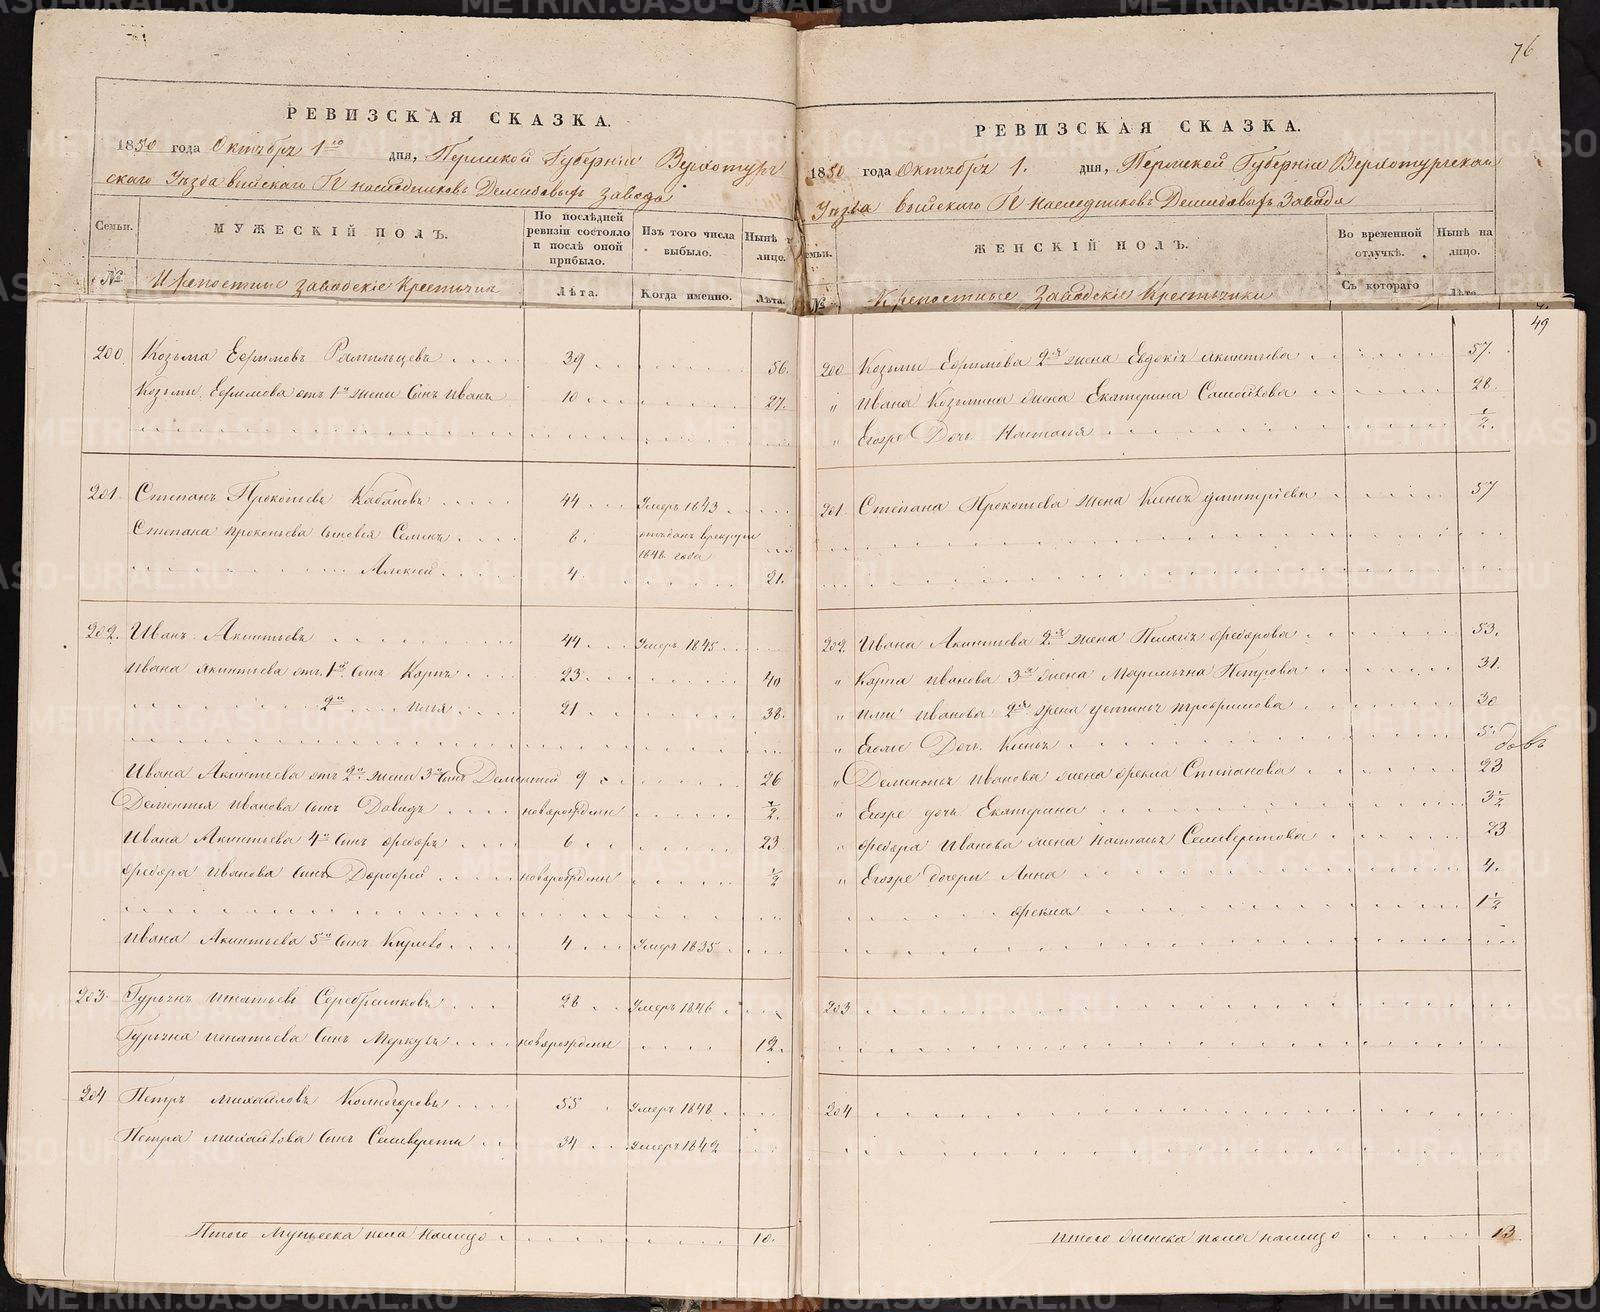 76
РЕВИЗСКАЯ СКАЗКА.
1850 года Октября 1го дня, Пермской Губернии Верхотурскаго Уезда Выйскаго Гг Наследниковъ Демидовыхъ завода
Семьи.
МУЖЕСКІЙ ПОЛЪ.
По послѣдней ревизіи состояло и послѣ оной прибыло.
Изъ того числа выбыло.
Нынѣ на лицо.
№
Крепостные заводскіе Крестьяне
Лѣта.
Когда именно.
Лѣта.
200 Козьма Ефимовъ 39 56.
Козьмы Ефимова отъ 1й жены Сынъ Иванъ 10 27.
201 Степанъ Прокопьевъ Кабановъ 44 Умеръ 1843
Степана Прокопьева сыновья Семенъ 6. отъданъ в рекруты 1848 года
Алексей 4 21.
202. Иванъ Акинтьевъ 44 Умеръ 1845
Ивана Акинтьева отъ 1й Сынъ Карпъ 23 40
2й Илья 21 38.
Ивана Акинтьева отъ 2й жены 3й Сынъ Дементей 9 26
Дементья Иванова Сынъ Давидъ новорожденн 1/2.
Ивана Акинтьева 4й Сынъ Федоръ 6 23
Федора Иванова Сынъ Дорофей новорожденн 1/2
Ивана Акинтьева 5й Сынъ 4 Умеръ 1835
203. Гурьянъ Игнатьевъ Серебренниковъ 28 Умеръ 1846
Гурьяна Игнатьева Сынъ Меркурій новорожденн 12.
204 Петръ Михайловъ Колногоровъ 55 Умеръ 1848
Петра Михайлова Сынъ Селиверстъ 34 Умеръ 1842
Итого Мужеска пола налицо 10.
РЕВИЗСКАЯ СКАЗКА.
1850 года Октября 1. дня, Пермской Губерніи Верхотурскаго
Уезда Выйскаго Гг Наследниковъ Демидовыхъ Завода
Семьи.
ЖЕНСКІЙ ПОЛЪ.
Во временной отлучкѣ.
Нынѣ на лицо.
№
Крепостные Заводскіе Крестьянки
Съ котораго
Лѣта
49
200 Козьмы Ефимова 2я жена Евдокія Акинтьева 57.
" Ивана Козьмина жена Екатерина Самойлова 28
" Егожъ Дочь Наталья 1/2.
201. Степана Прокопьева жена Дмитріева 57
202. Ивана Акинтьева 2я жена Пелагея Федорова 53.
" Карпа Иванова 3я жена Маремьяна Петрова 31.
" Ильи Иванова 2я жена Устинья Трофимова 30
" Егоже Дочь 5.
" Дементья Иванова жена Фекла Степанова 23
" Егоже дочь Екатерина 3 1/2
" Федора Иванова жена Наталья Селиверстова 23
" Егоже дочери Анна 4.
Фекла 1 1/2
203
204
Итого женска пола налицо 13
METRIKI.GASO-URAL.RU